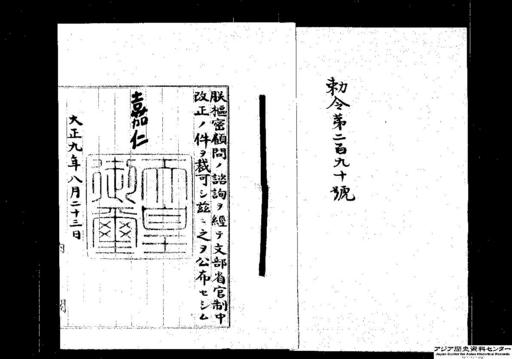 勅令第二百九十號
朕樞密顧問ノ諮詢ヲ經テ文部省官制中
改正ノ件ヲ裁可シ茲ニ之ヲ公布セシム
嘉仁
天皇御璽
大正九年八月二十三日
内閣
アジア歴史資料センター
Japan Center for Asian Historical Records